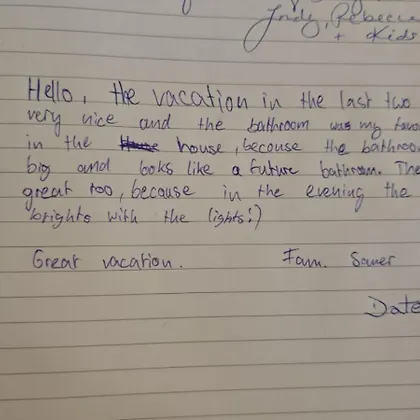 Jody, Rebecca
+ Kids
Hello, the vacation in the last two
very nice and the bathroom was my favo
in the house, becouse the bathroo
big and looks like a future bathroom. The
great too, because in the evening the
brights with the lights:)
Great vacation. Fam. Sauer
Date